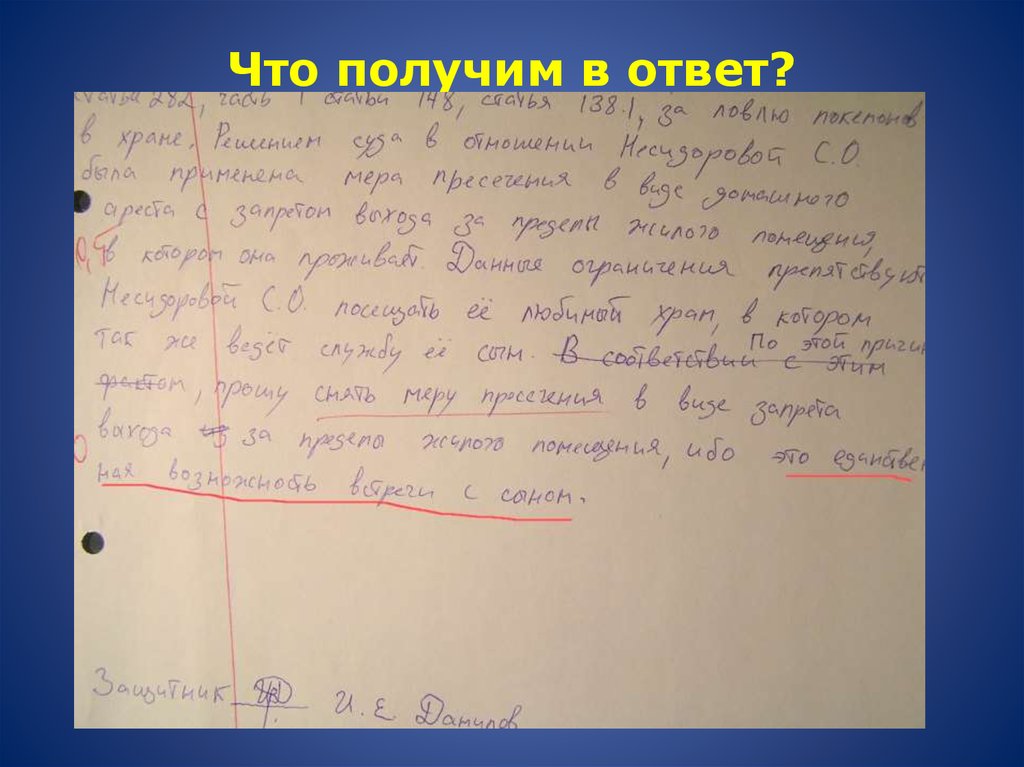 Что получим в ответ?
статьи 282, часть 1 статьи 148, статья 138.1, за ловлю покемонов
в храме. Решением суда в отношении Несидоровой С.О.
была применена мера пресечения в виде домашного
ареста с запретом выхода за пределы жилого помещения,
0,5
в котором она проживает. Данные ограничения препятствуют
Несидоровой С.О. посещать её любимый храм, в котором
так же ведёт службу её сын. В соответствии с этим
По этой причин
фактом, прошу снять меру пресечения в виде запрета
выхода за пределы жилого помещения, ибо это единствен
0
ная возможность встречи с сыном.
Защитник И.Е Данилов